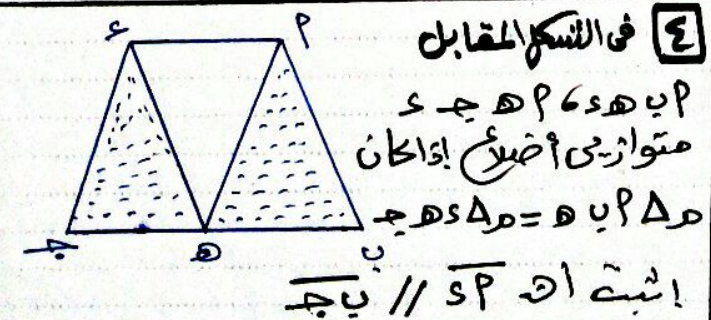 ٤ في الشكل المقابل
أ ب هـ ء ، أ هـ جـ ء
متوازيى أضلاع إذا كان
م Δ أ ب هـ = م Δ ء هـ جـ
اثبت أن أ ء // ب جـ
ء أ
جـ هـ ب